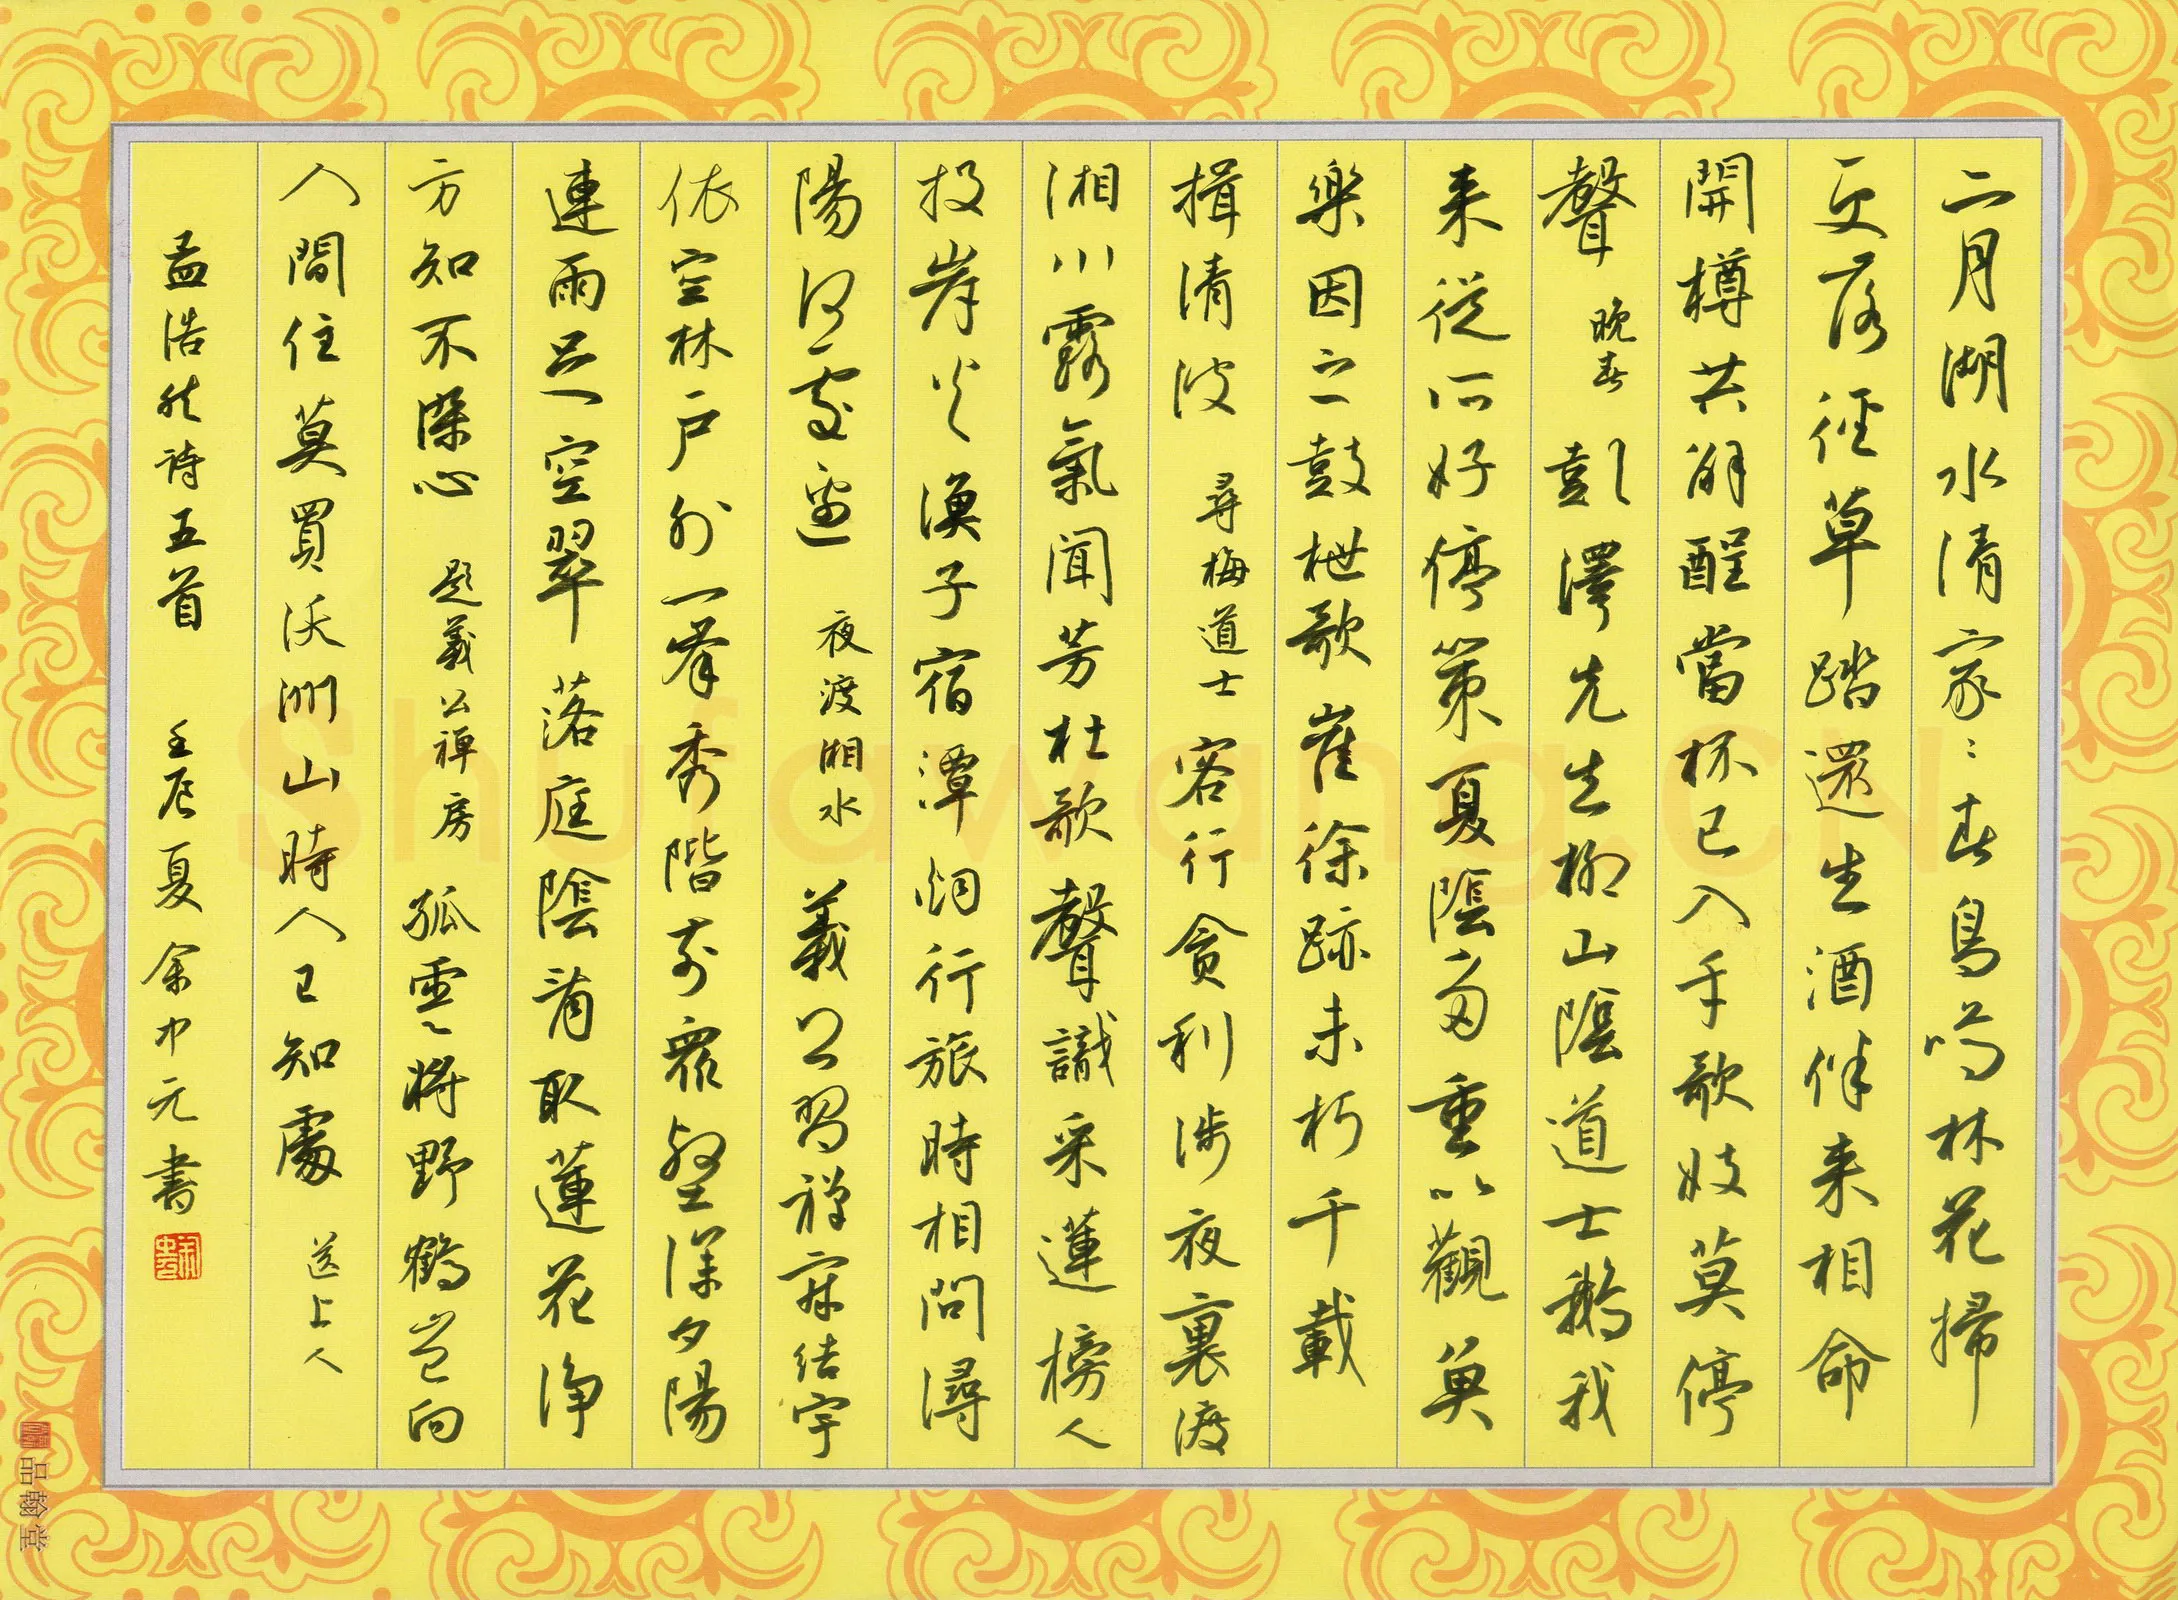 二月湖水清家〻春鳥鳴林花掃
更落徑草踏還生酒伴来相命
開樽共解酲當杯已入手歌妓莫停
聲 晚春 彭澤先生柳山陰道士鵝我
来從所好停策夏陰多重以觀魚
樂因之鼓枻歌崔徐跡未朽千載
揖清波 尋梅道士 客行貪利涉夜裏渡
湘川露氣聞芳杜歌聲識采蓮榜人
投岸火漁子宿潭烟行旅時相問潯
陽何處邊 夜渡湘水 義公習禪寂結宇
依空林戶外一峯秀階前衆壑深夕陽
連雨足空翠落庭陰看取蓮花淨
方知不染心 題義公禪房 孤雲將野鶴豈向
人間住莫買沃洲山時人已知處 送上人
孟浩然詩五首 壬辰夏余中元書
品翰堂
Shufawang.CN